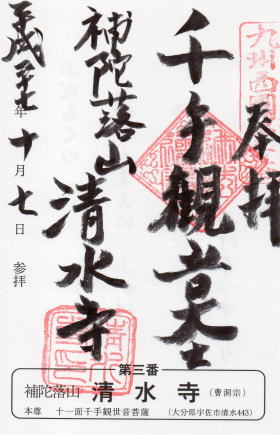 奉拝
千手観世音大士
補陀落山
清水寺
平成二十七年十月七日参拝
九州西国
第三番
補陀落山 清水寺 (曹洞宗)
本尊 十一面千手観世音菩薩 (大分県宇佐市清水443)